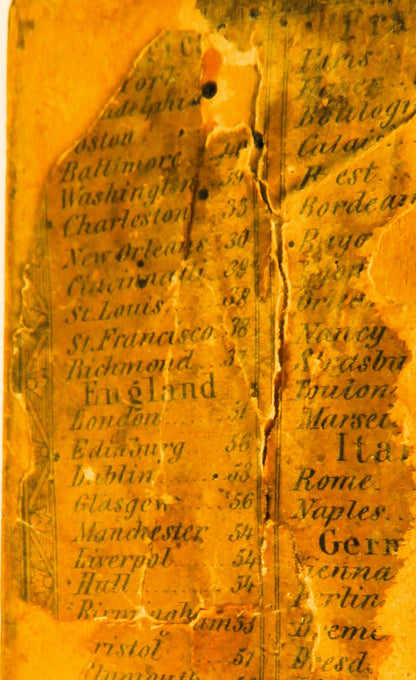 Baltimore
Washington 39
Charleston 33
New Orleans 30
Cincinnati 39
St. Louis 38
St. Francisco 38
Richmond 37
England
London 51
Edinburg 56
Dublin 53
Glasgow 56
Manchester 54
Liverpol 54
Hull 54
Birmingham 53
ristol 51
Plymouth
Paris
Boulogn
Calai
Bordeau
Bayo
Nancy
Strasbu
Toulon
Marsei
Ita
Rome
Naples
Germ
ienna
Berlin
Breme
Dresd